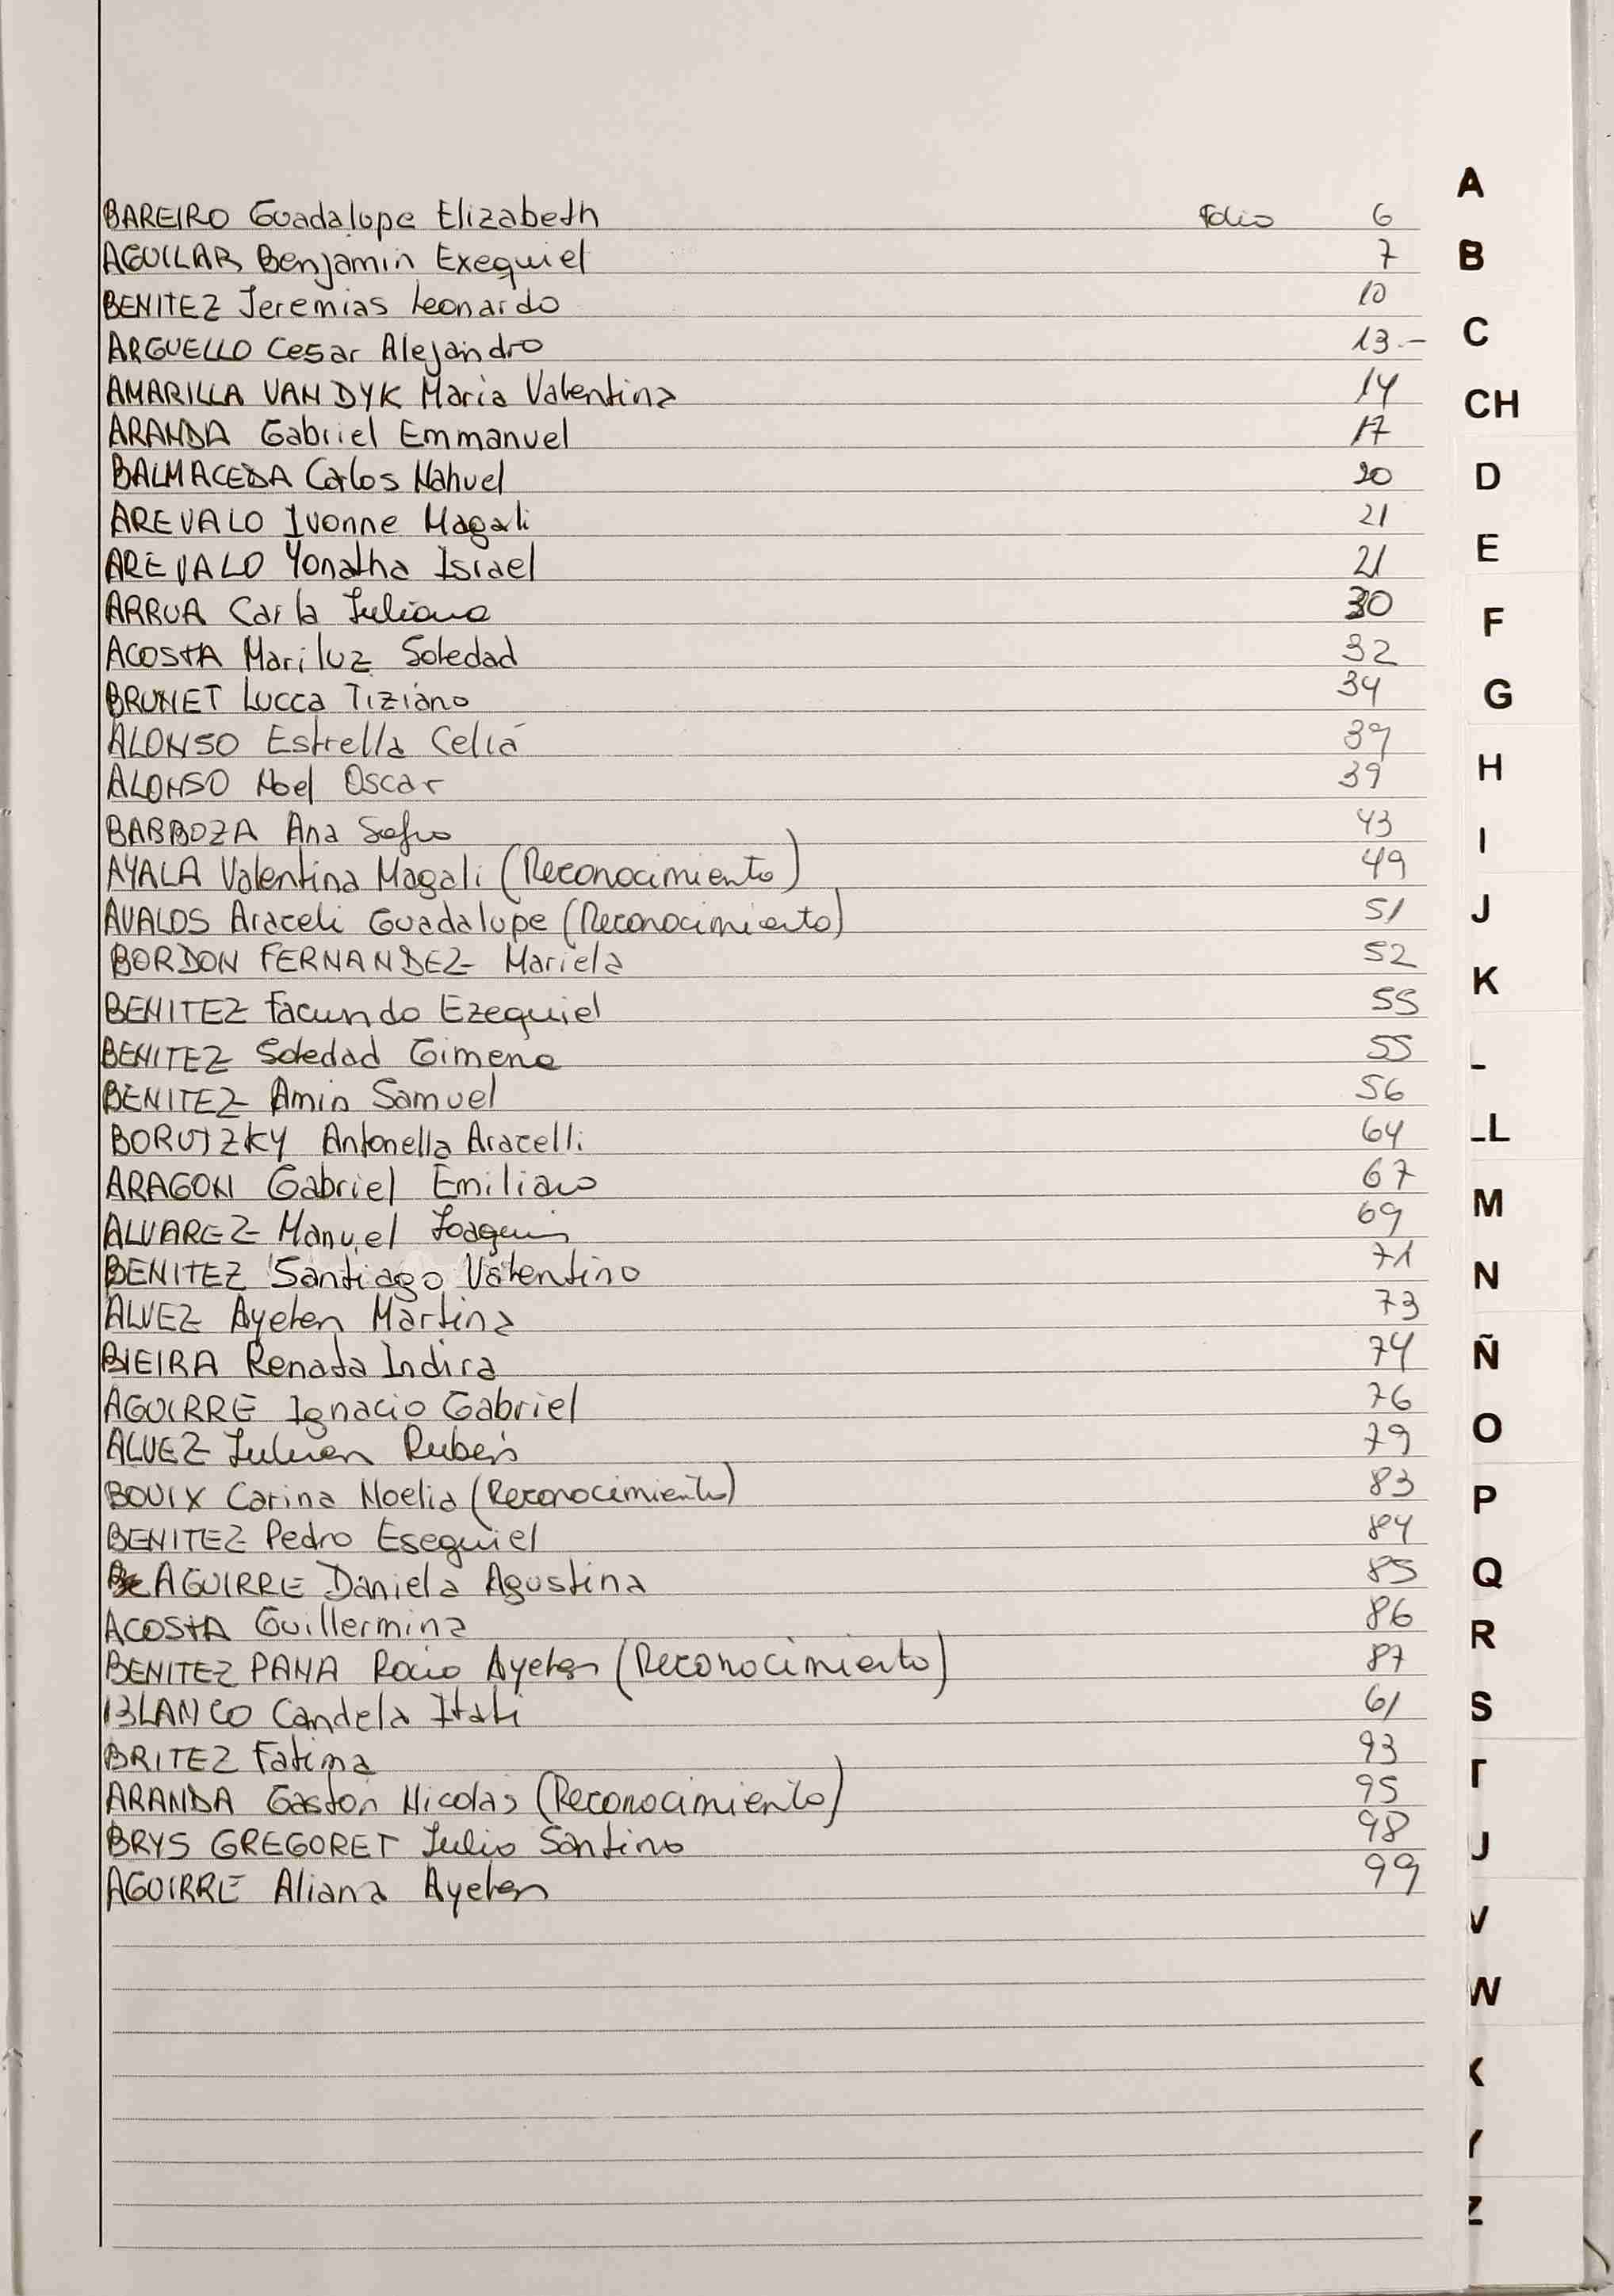 BAREIRO Guadalupe Elizabeth Folio 6
AGUILAR Benjamin Exequiel 7
BENITEZ Jeremias Leonardo 10
ARGUELLO Cesar Alejandro 13.-
AMARILLA VAN DYK Maria Valentina 14
ARANDA Gabriel Emmanuel 17
BALMACEDA Carlos Nahuel 20
AREVALO Ivonne Magali 21
AREVALO Yonatha Israel 21
ARRUA Carla Juliana 30
ACOSTA Mariluz Soledad 32
BRUNET Lucca Tiziano 34
ALONSO Estrella Celia 39
ALONSO Noel Oscar 39
BARBOZA Ana Sofia 43
AYALA Valentina Magali (Reconocimiento) 49
AVALOS Araceli Guadalupe (Reconocimiento) 51
BORDON FERNANDEZ Mariela 52
BENITEZ Facundo Ezequiel 55
BENITEZ Soledad Gimena 55
BENITEZ Amin Samuel 56
BORUTZKY Antonella Aracelli 64
ARAGON Gabriel Emiliano 67
ALVAREZ Manuel Joaquin 69
BENITEZ Santiago Valentino 71
ALVEZ Ayelen Martina 73
BIEIRA Renata Indira 74
AGUIRRE Ignacio Gabriel 76
ALVEZ Julian Ruben 79
BOUIX Carina Noelia (Reconocimiento) 83
BENITEZ Pedro Esequiel 84
AGUIRRE Daniela Agustina 85
ACOSTA Guillermina 86
BENITEZ PANA Rocio Ayelen (Reconocimiento) 87
BLANCO Candela Itati 61
BRITEZ Fatima 93
ARANDA Gaston Nicolas (Reconocimiento) 95
BRYS GREGORET Julio Santino 98
AGUIRRE Aliana Ayelen 99
A
B
C
CH
D
E
F
G
H
I
J
K
L
LL
M
N
Ñ
O
P
Q
R
S
T
U
V
W
X
Y
Z